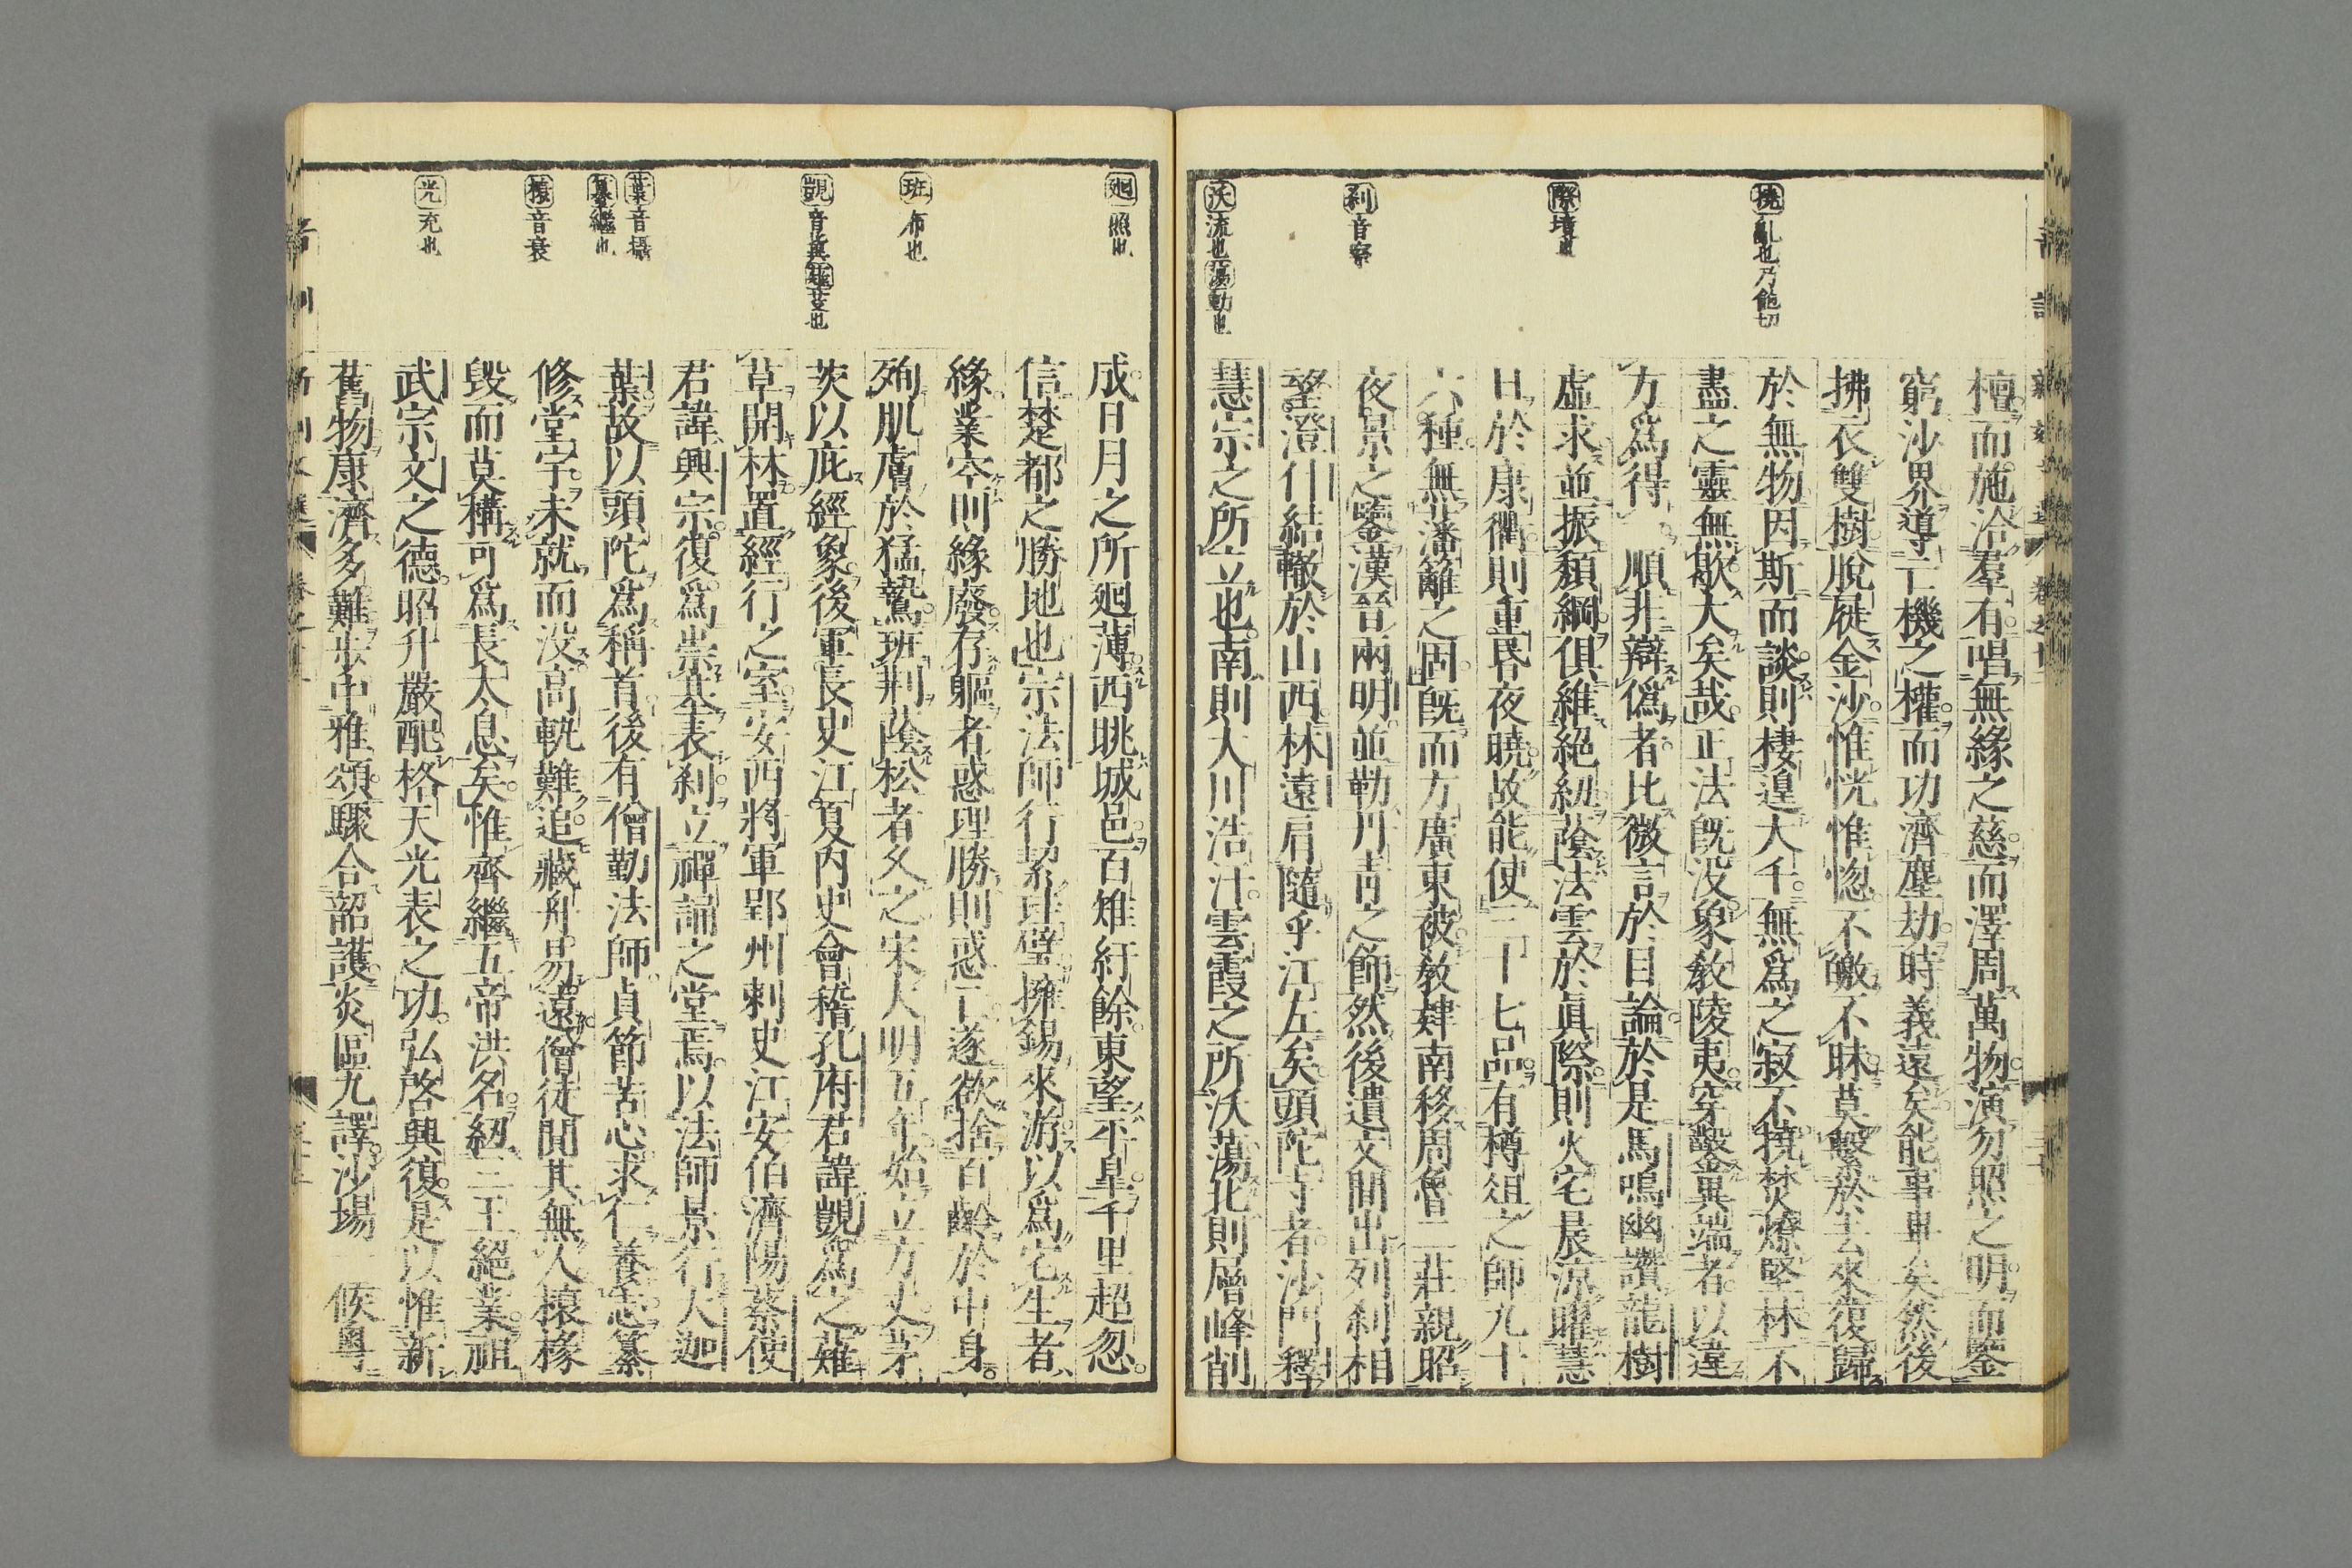 撓亂也乃飽切
際境也
刹音察
沃流也蕩動也
檀而施洽羣有唱無緣之慈而澤周萬物演勿照之明而鑒
窮沙界導亡機之權而功濟塵劫時義遠矣能事畢矣然後
拂衣雙樹脫屣金沙惟恍惟惚不皦不昧莫繫於去來復歸
於無物因斯而談則棲遑大千無爲之寂不撓焚燎堅林不
盡之靈無歇大矣哉正法既没象教陵夷穿鑿異端者以違
方爲得一順非辯僞者比微言於目論於是馬鳴幽讚龍樹
虛求並振頹綱俱維絕紐蔭法雲於眞際則火宅晨涼曜慧
日於康衢則重昏夜曉故能使三十七品有樽俎之師九十
六種無藩籬之固既而方廣東被教肄南移周魯二莊親昭
夜景之鑒漢晉兩明並勒丹青之飾然後遺文間出列刹相
望澄什結轍於山西林遠肩隨乎江左矣頭陀寺者沙門釋
慧宗之所立也南則大川浩汗雲霞之所沃蕩北則層峰削
廻照也
班布也
覬音冀薙芟也
葉音攝
纂繼也
榱音衰
光充也
成日月之所廻薄西眺城邑百雉紆餘東望平皐千里超忽
信楚都之勝地也宗法師行絜珪璧擁錫來游以爲宅生者
緣業空則緣廢存軀者惑理勝則惑亡遂欲捨百齡於中身
殉肌膚於猛鷙班荆蔭松者久之宋大明五年始立方丈茅
茨以庇經象後軍長史江夏内史會稽孔府君諱覬爲之薙
草開林置經行之室安西將軍郢州刺史江安伯濟陽蔡使
君諱興宗復爲崇基表刹立禪誦之堂焉以法師景行大迦
葉故以頭陀爲稱首後有僧勤法師貞節苦心求仁養志纂
修堂宇未就而没高軌難追藏舟易遠僧徒閴其無人榱椽
毀而莫構可爲長太息矣惟齊繼五帝洪名紐三王絕業祖
武宗文之德昭升嚴配格天光表之功弘啓興復是以惟新
舊物康濟多難步中雅頌驟合韶護炎區九譯沙場一候粵